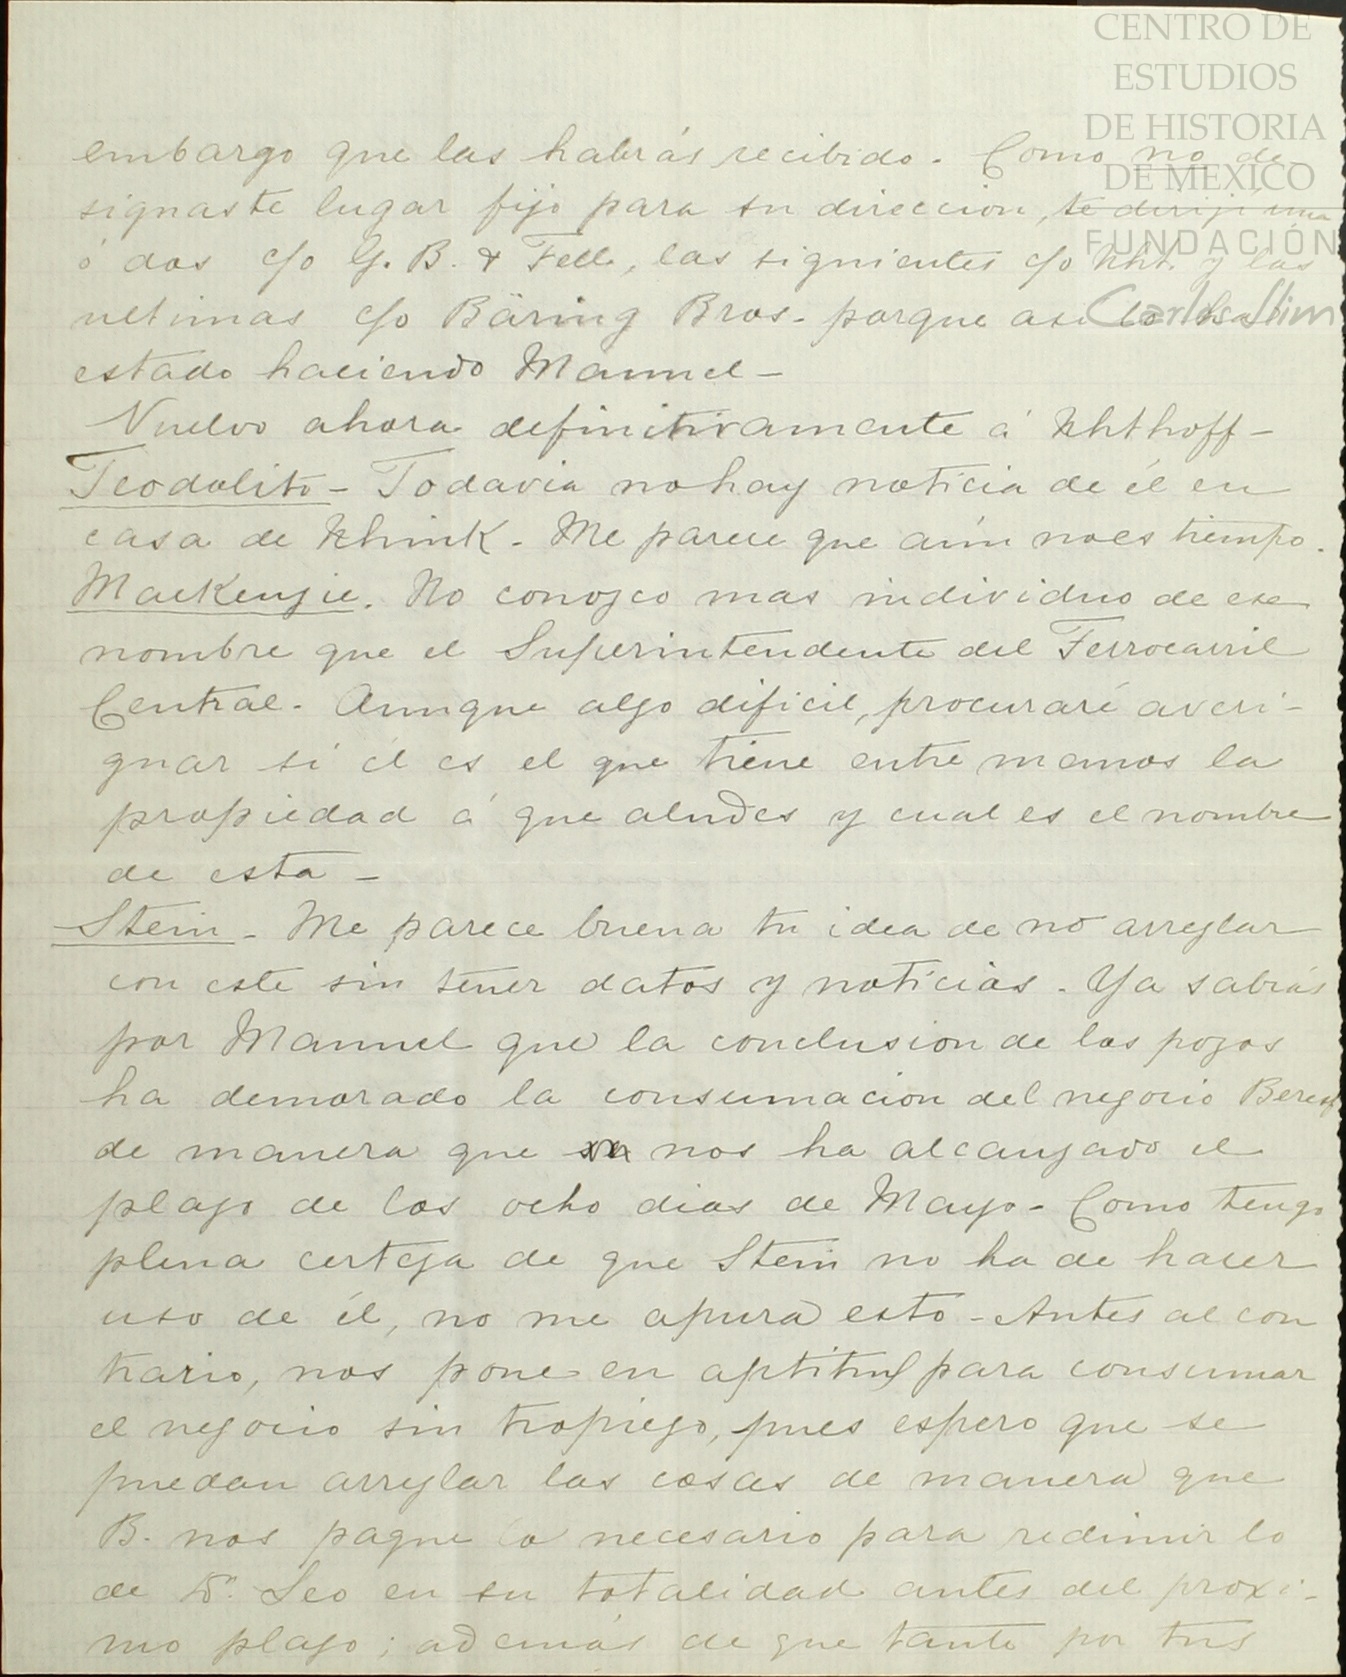 CENTRO DE
ESTUDIOS
DE HISTORIA
DE MÉXICO
FUNDACIÓN
Carlos Slim
embargo que las habrás recibido. Como no de-
signaste lugar fijo para su direccion, te dirijí una
ó dos c/o G. B. & Fell., las siguientes c/o Kht. y las
ultimas c/o Bäring Bros. porque asi lo ha
estado haciendo Manuel—
Vuelvo ahora definitivamente á Khthoff—
Teodolito— Todavia no hay noticia de él en
casa de Khink. Me parece que aún no es tiempo.
MacKenzie. No conozco mas individuo de ese
nombre que el Superintendente del Ferrocarril
Central. Aunque algo dificil, procuraré averi-
guar si él es el que tiene entre manos la
propiedad á que aludes y cual es el nombre
de esta—
Stein. Me parece buena tu idea de no arreglar
con este sin tener datos y noticias. Ya sabrás
por Manuel que la conclusion de los pozos
ha demorado la consumacion del negocio
de manera que nos ha alcanzado el
plazo de los ocho dias de Mayo. Como tengo
plena certeza de que Stein no ha de hacer
uso de él, no me apura esto. Antes al con
trario, nos pone en aptitud para consumar
el negocio sin tropiezo, pues espero que se
puedan arreglar las cosas de manera que
B. nos pague lo necesario para redimir lo
de Dn. Leo en su totalidad antes del proxi-
mo plazo; además de que tanto por tus